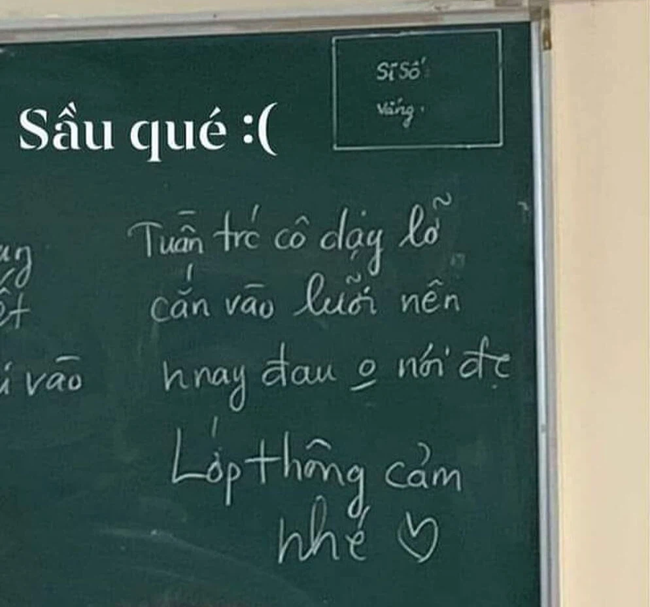 Sĩ Số
Vắng.
Sầu qué :(
Tuần trc cô dạy lỡ
cắn vào lưỡi nên
vào
hnay đau o nói đc
Lớp thông cảm
nhé ♡